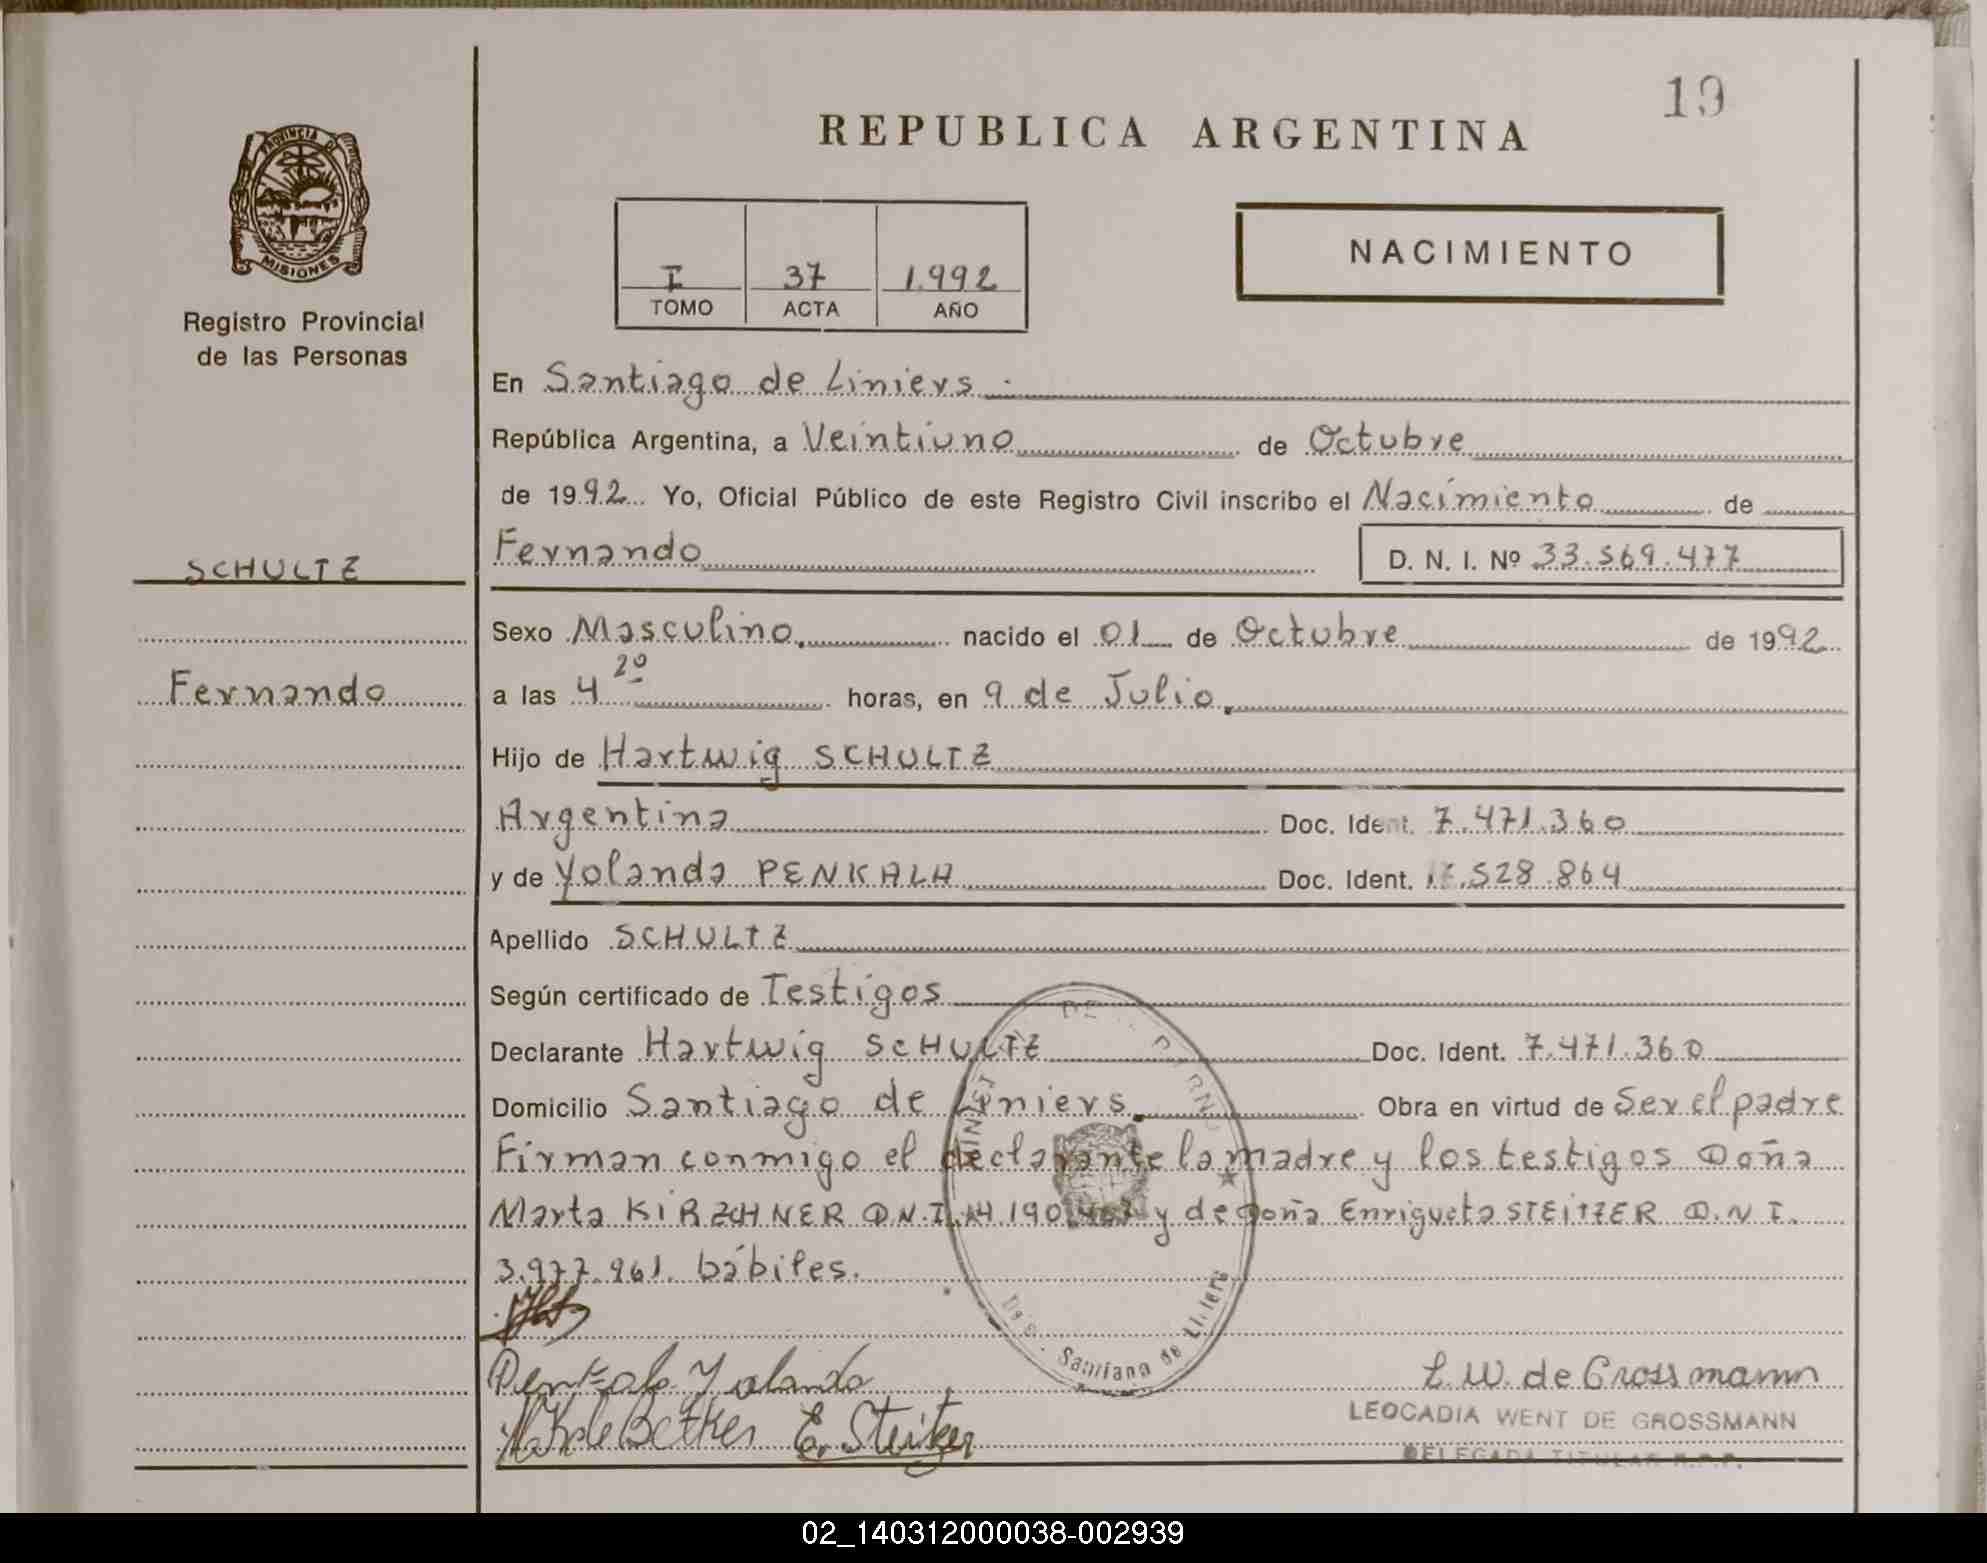 19
REPUBLICA ARGENTINA
PROVINCIA DE
MISIONES
Registro Provincial
de las Personas
I 37 1.992
TOMO ACTA AÑO
NACIMIENTO
En Santiago de Liniers.
República Argentina, a Veintiuno de Octubre
de 1992 Yo, Oficial Público de este Registro Civil inscribo el Nacimiento de
SCHULTZ
Fernando D. N. I. Nº 33.569.477
Sexo Masculino. nacido el 01 de Octubre de 1992
Fernando
a las 4 20 horas, en 9 de Julio.
Hijo de Hartwig SCHULTZ
Argentina Doc. Ident. 7.471.360
y de Yolanda PENKALA Doc. Ident. .528.864
Apellido SCHULTZ
Según certificado de Testigos
Declarante Hartwig SCHULTZ Doc. Ident. 7.471.360
Domicilio Santiago de Liniers. Obra en virtud de Ser el padre
Firman conmigo el declarante la madre y los testigos Doña
Marta KIRZCHNER D.N.I. 14.190. y de Doña Enriqueta STEITZER D.N.I.
3.977.961. bábiles.
Penkala Yolanda
Betker E. Steitzer
L. W. de Grossmann
LEOCADIA WENT DE GROSSMANN
DELEGADA TITULAR R.P.P.
02_140312000038-002939